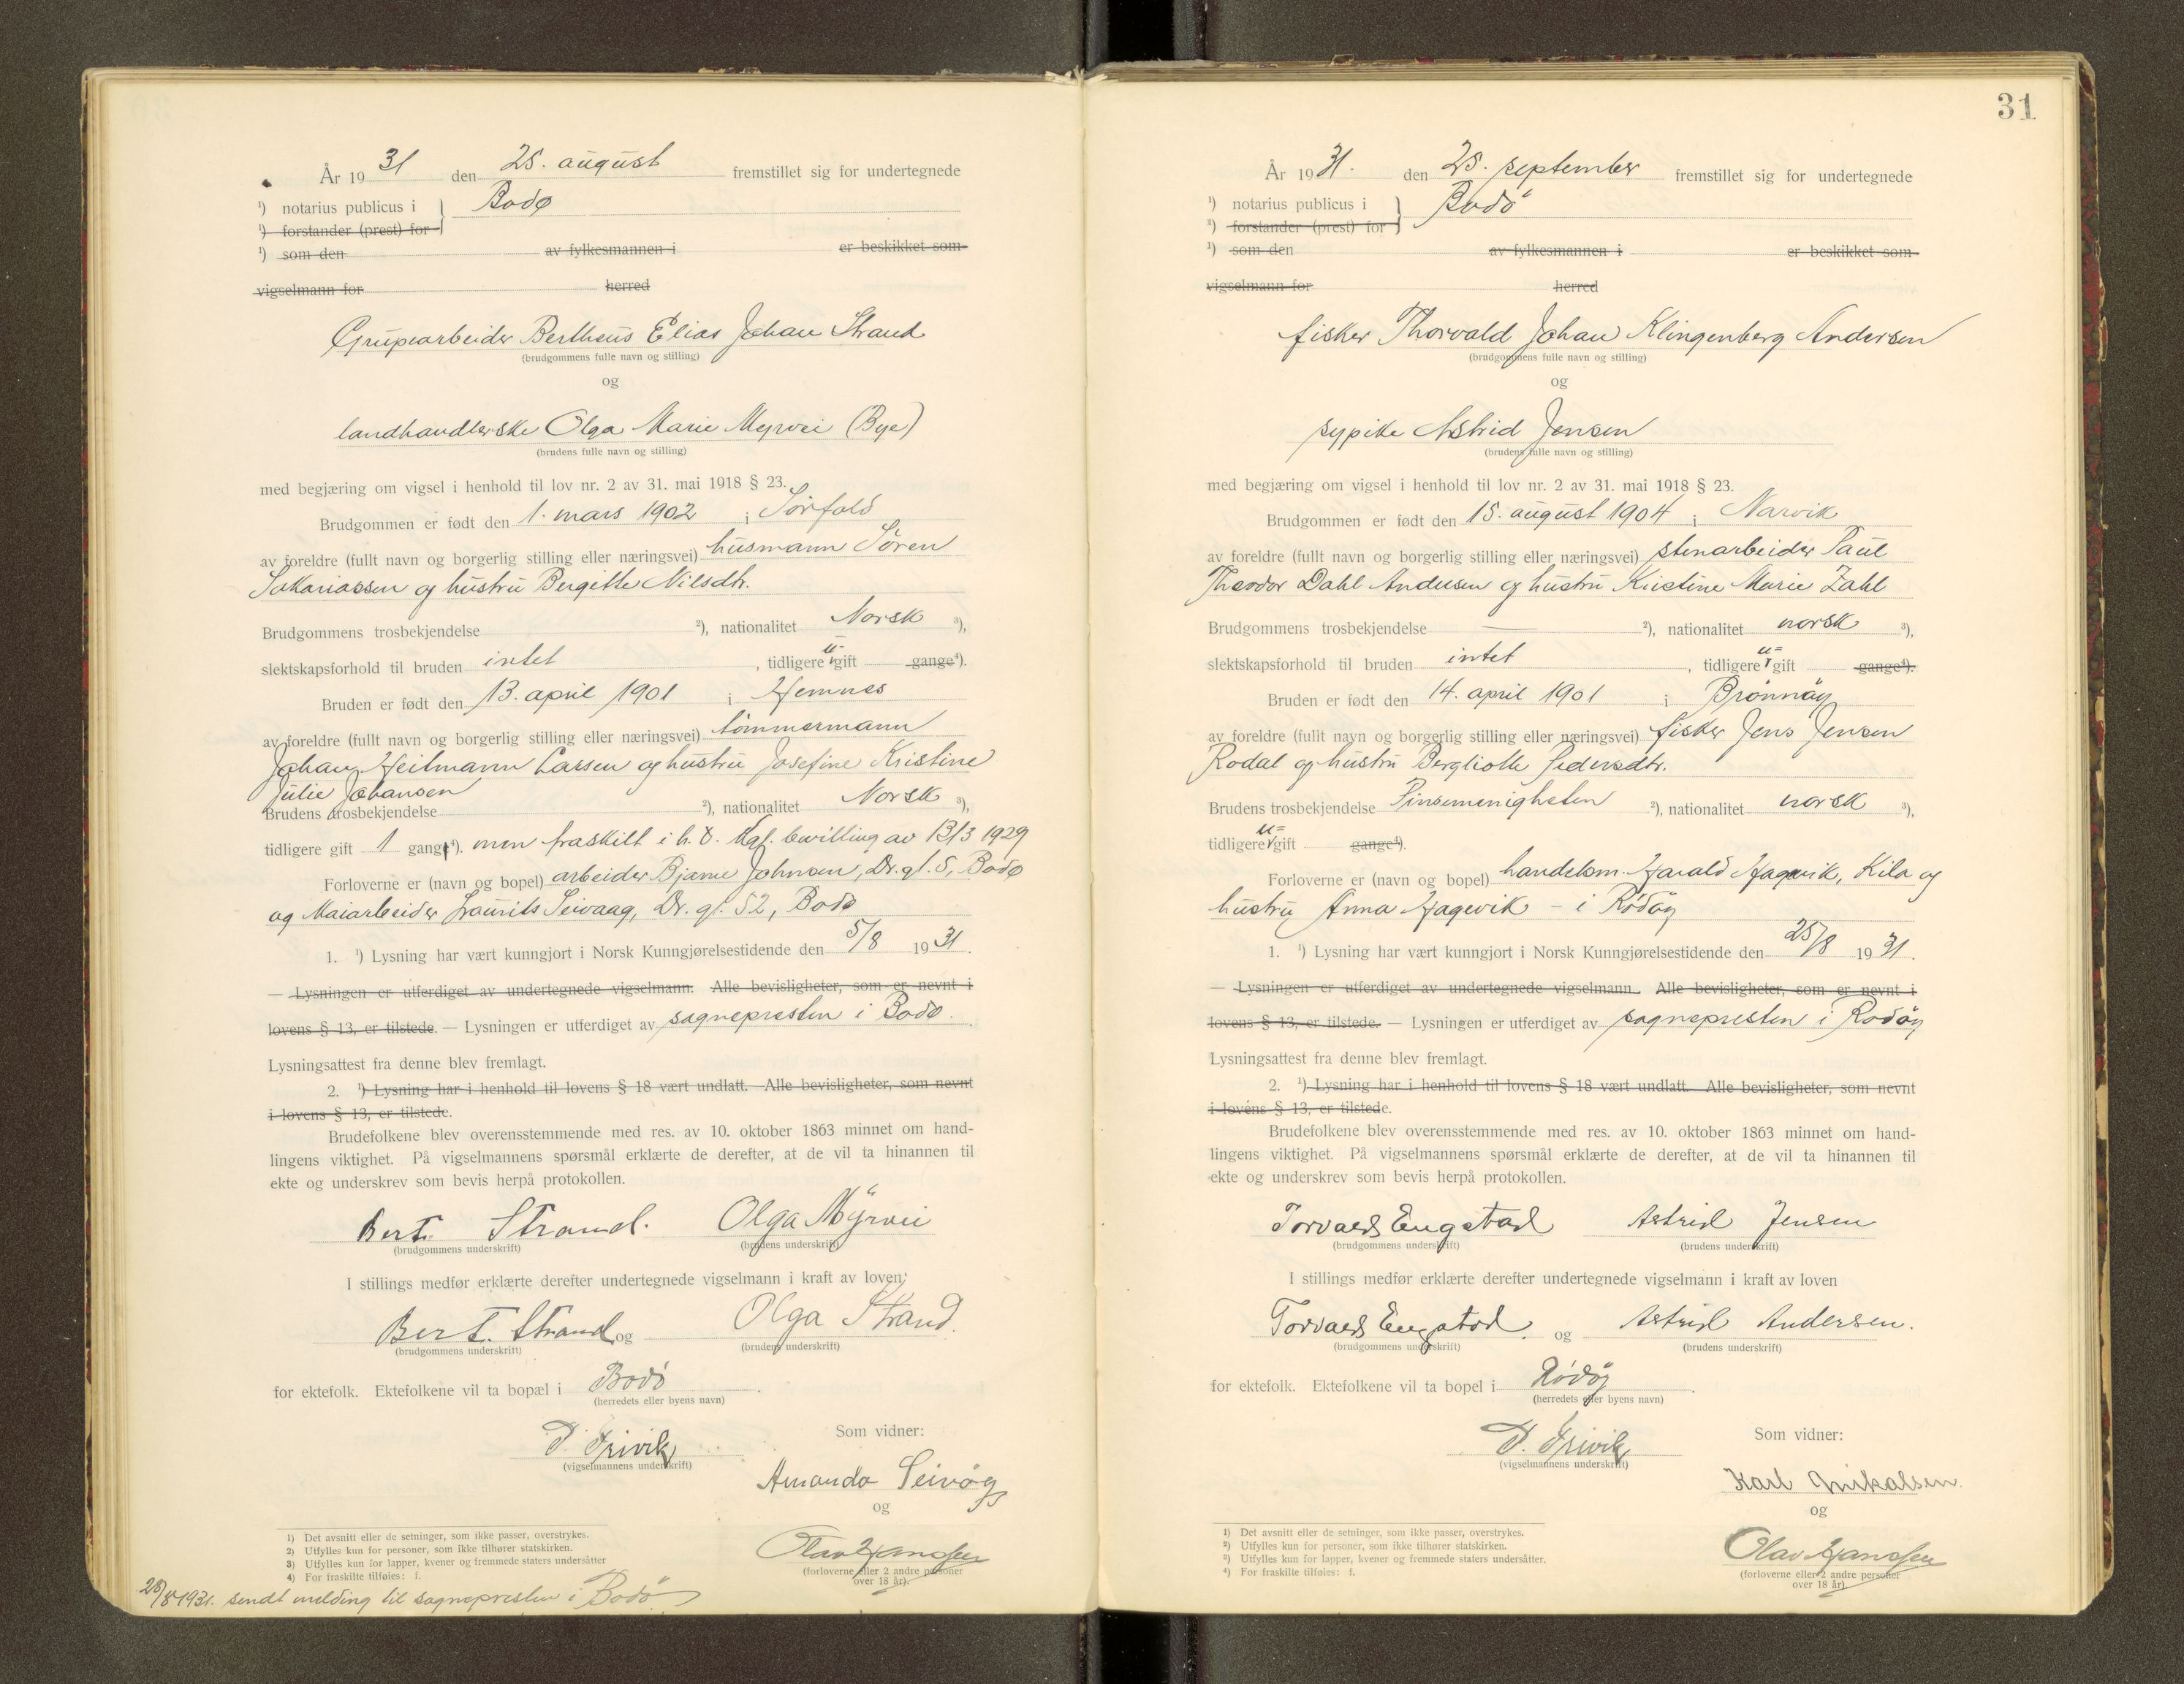 År 1931 den 25. august fremstillet sig for undertegnede
¹) notarius publicus i } Bodø
¹) forstander (prest) for
¹) som den av fylkesmannen i er beskikket som
vigselmann for herred
Grupearbeider Bertheus Elias Johan Strand
(brudgommens fulle navn og stilling)
og
landhandlerske Olga Marie Myrvei (Bye)
(brudens fulle navn og stilling)
med begjæring om vigsel i henhold til lov nr. 2 av 31. mai 1918 § 23.
Brudgommen er født den 1. mars 1902 i Sörfold
av foreldre (fullt navn og borgerlig stilling eller næringsvei) husmann Sören
Sakariassen og hustru Bergitte Nilsdtr.
Brudgommens trosbekjendelse ²), nationalitet Norsk ³),
slektskapsforhold til bruden intet, tidligere u- gift gange⁴).
Bruden er født den 13. april 1901 i Hemnes
av foreldre (fullt navn og borgerlig stilling eller næringsvei) tömmermann
Johan Heitmann Larsen og hustru Josefine Kristine
Julie Johansen
Brudens trosbekjendelse ²), nationalitet Norsk ³),
tidligere gift 1 gang⁴). men fraskilt i h. t. kgl. bevilling av 13/3 1929
Forloverne er (navn og bopel) arbeider Bjarne Johnsen, Dr. gt. 5, Bodø
og Maiarbeider Laurits Seivaag, Dr. gt. 52, Bodø
1. ¹) Lysning har vært kunngjort i Norsk Kunngjørelsestidende den 5/8 1931.
— Lysningen er utferdiget av undertegnede vigselmann. Alle bevisligheter, som er nevnt i
lovens § 13, er tilstede. — Lysningen er utferdiget av sognepresten i Bodø.
Lysningsattest fra denne blev fremlagt.
2. ¹) Lysning har i henhold til lovens § 18 vært undlatt. Alle bevisligheter, som nevnt
i lovens § 13, er tilstede.
Brudefolkene blev overensstemmende med res. av 10. oktober 1863 minnet om hand-
lingens viktighet. På vigselmannens spørsmål erklærte de derefter, at de vil ta hinannen til
ekte og underskrev som bevis herpå protokollen.
Bert. Strand. Olga Myrvei
(brudgommens underskrift) (brudens underskrift)
I stillings medfør erklærte derefter undertegnede vigselmann i kraft av loven
Bert. Strand og Olga Strand.
(brudgommens underskrift) (brudens underskrift)
for ektefolk. Ektefolkene vil ta bopæl i Bodö.
(herredets eller byens navn)
(vigselmannens underskrift)
Som vidner:
Amanda Seivåg
og
Olav Hanssen
(forloverne eller 2 andre personer
over 18 år).
1) Det avsnitt eller de setninger, som ikke passer, overstrykes.
2) Utfylles kun for personer, som ikke tilhører statskirken.
3) Utfylles kun for lapper, kvener og fremmede staters undersåtter
4) For fraskilte tilføies: f.
28/8 1931. sendt melding til sognepresten i Bodö
31
År 1931. den 25. september fremstillet sig for undertegnede
¹) notarius publicus i } Bodö
²) forstander (prest) for
¹) som den av fylkesmannen i er beskikket som
vigselmann for herred
fisker Thorvald Johan Klingenberg Andersen
(brudgommens fulle navn og stilling)
og
sypike Astrid Jensen
(brudens fulle navn og stilling)
med begjæring om vigsel i henhold til lov nr. 2 av 31. mai 1918 § 23.
Brudgommen er født den 15. august 1904 i Narvik
av foreldre (fullt navn og borgerlig stilling eller næringsvei) stenarbeider Paul
Theodor Dahl Andersen og hustru Kristine Marie Zahl
Brudgommens trosbekjendelse — ²), nationalitet norsk ³),
slektskapsforhold til bruden intet, tidligere u- gift gange⁴).
Bruden er født den 14. april 1901 i Brönnöy
av foreldre (fullt navn og borgerlig stilling eller næringsvei) fisker Jens Jensen
Rodal og hustru Bergliotte Pedersdtr.
Brudens trosbekjendelse Pinsemenigheten ²), nationalitet norsk ³),
tidligere u- gift gange⁴).
Forloverne er (navn og bopel) handelsm. Harald Hagevik, Kila og
hustru Anna Hagevik - i Rödöy
1. ¹) Lysning har vært kunngjort i Norsk Kunngjørelsestidende den 25/8 1931.
— Lysningen er utferdiget av undertegnede vigselmann. Alle bevisligheter, som er nevnt i
lovens § 13, er tilstede. — Lysningen er utferdiget av sognepresten i Rödöy
Lysningsattest fra denne blev fremlagt.
2. ¹) Lysning har i henhold til lovens § 18 vært undlatt. Alle bevisligheter, som nevnt
i lovens § 13, er tilstede.
Brudefolkene blev overensstemmende med res. av 10. oktober 1863 minnet om hand-
lingens viktighet. På vigselmannens spørsmål erklærte de derefter, at de vil ta hinannen til
ekte og underskrev som bevis herpå protokollen.
Torvald Engstad Astrid Jensen
(brudgommens underskrift) (brudens underskrift)
I stillings medfør erklærte derefter undertegnede vigselmann i kraft av loven
Torvald Engstad. og Astrid Andersen.
(brudgommens underskrift) (brudens underskrift)
for ektefolk. Ektefolkene vil ta bopel i Rödöy.
(herredets eller byens navn)
(vigselmannens underskrift)
Som vidner:
Karl Mikalsen.
og
Olav Hanssen
(forloverne eller 2 andre personer
over 18 år).
1) Det avsnitt eller de setninger, som ikke passer, overstrykes.
2) Utfylles kun for personer, som ikke tilhører statskirken.
3) Utfylles kun for lapper, kvener og fremmede staters undersåtter.
4) For fraskilte tilføies: f.